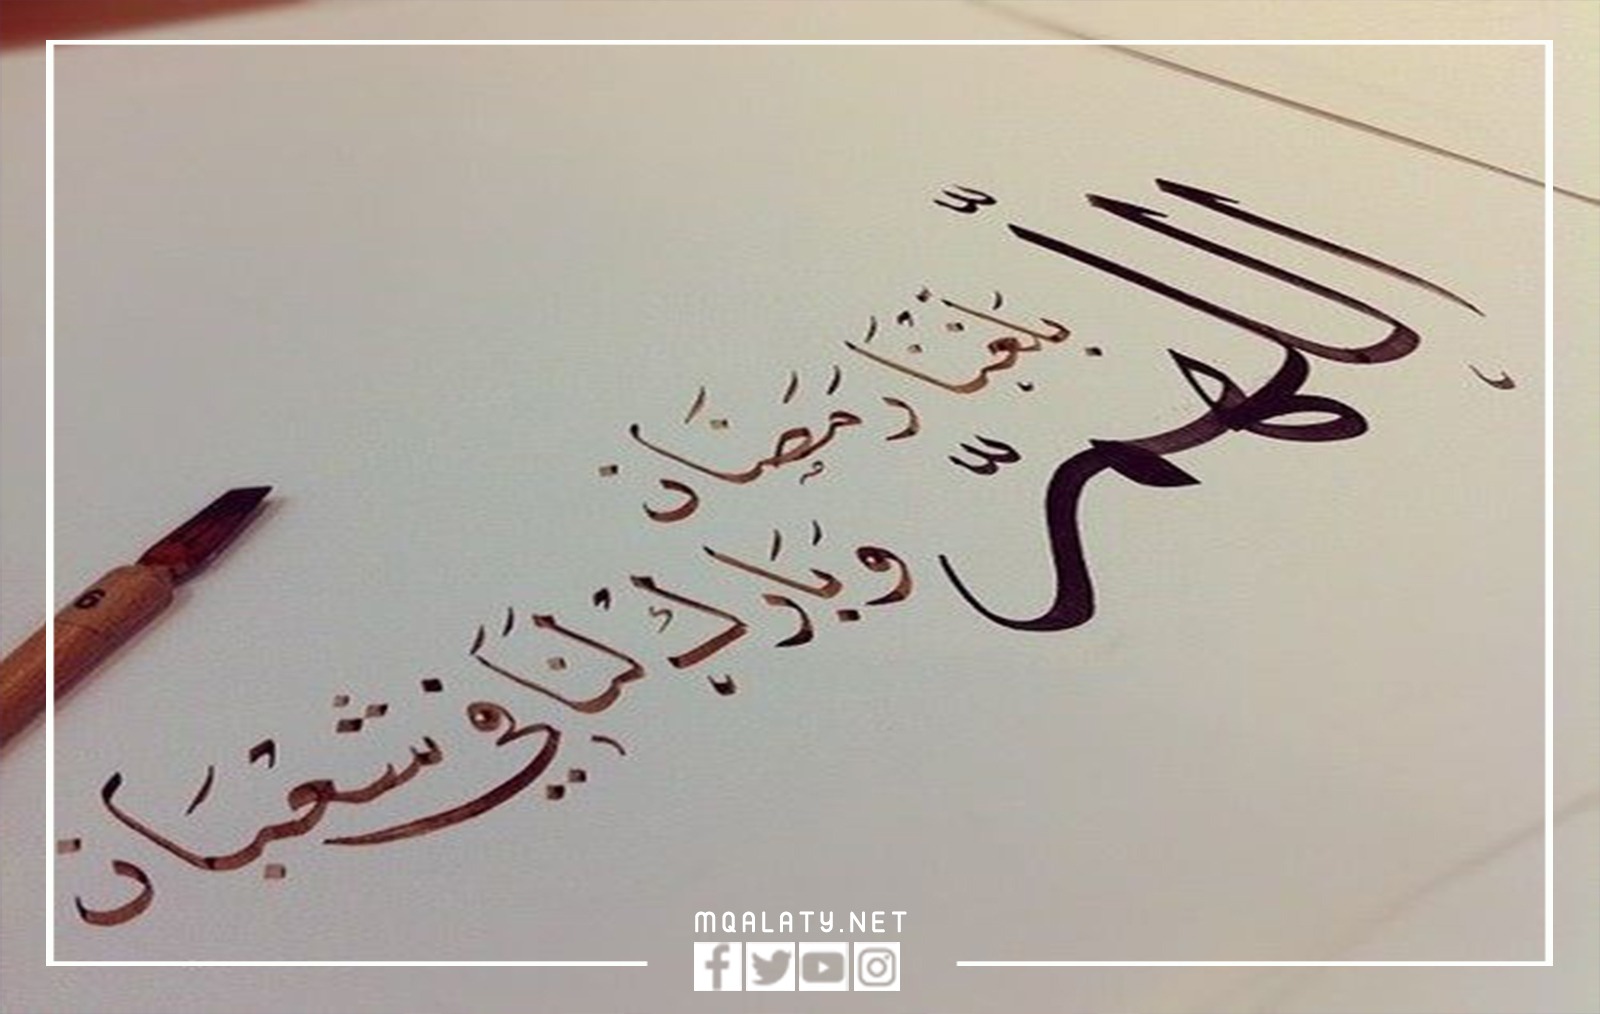 اللَّهُمَّ
بَلِّغْنَا رَمَضَان
وَبَارِك لَنَا فِي شَعْبَان
6
MQALATY.NET